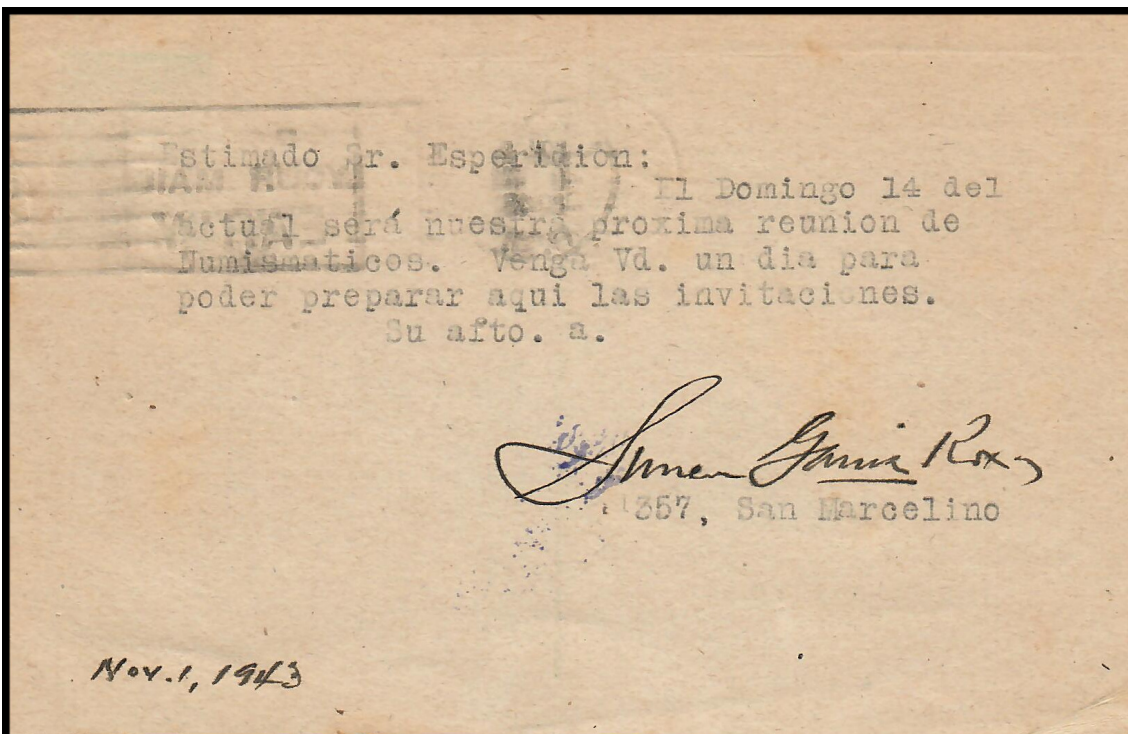 Estimado Sr. Esperidion:
El Domingo 14 del
actual será nuestra proxima reunion de
Numismaticos. Venga Vd. un dia para
poder preparar aqui las invitaciones.
Su afto. a.
Garcia Roxas
357, San Marcelino
Nov. 1, 1943